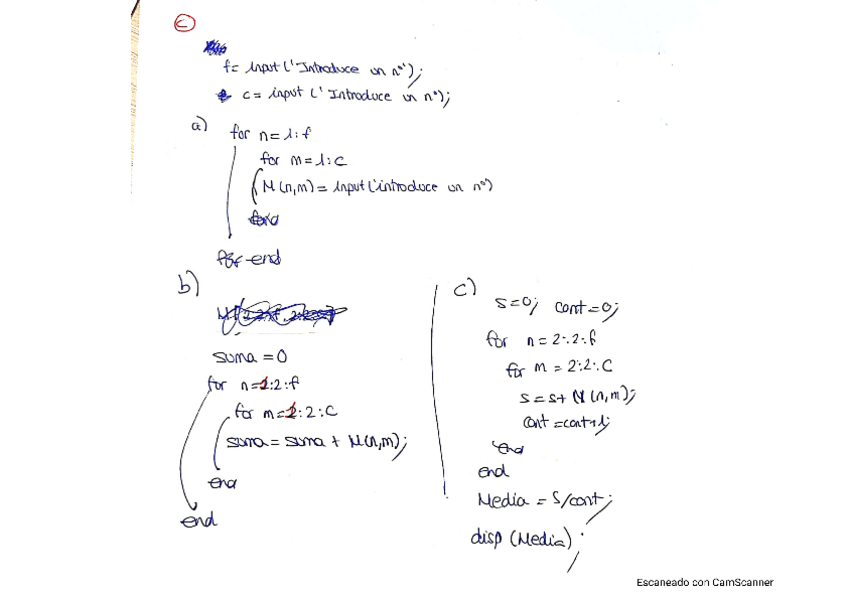 c
f= input ('Introduce un nº');
c= input ('Introduce un nº);
a)
for n=1:f
for m=1:c
M(n,m)= input ('introduce un nº)
end
end
b)
suma=0
for n=1:2:f
for m=1:2:c
suma= suma + M(n,m);
end
end
c)
s=0; cont=0;
for n=2:2:f
for m=2:2:c
s=s+ M(n,m);
cont=cont+1;
end
end
Media = s/cont;
disp (Media);
Escaneado con CamScanner